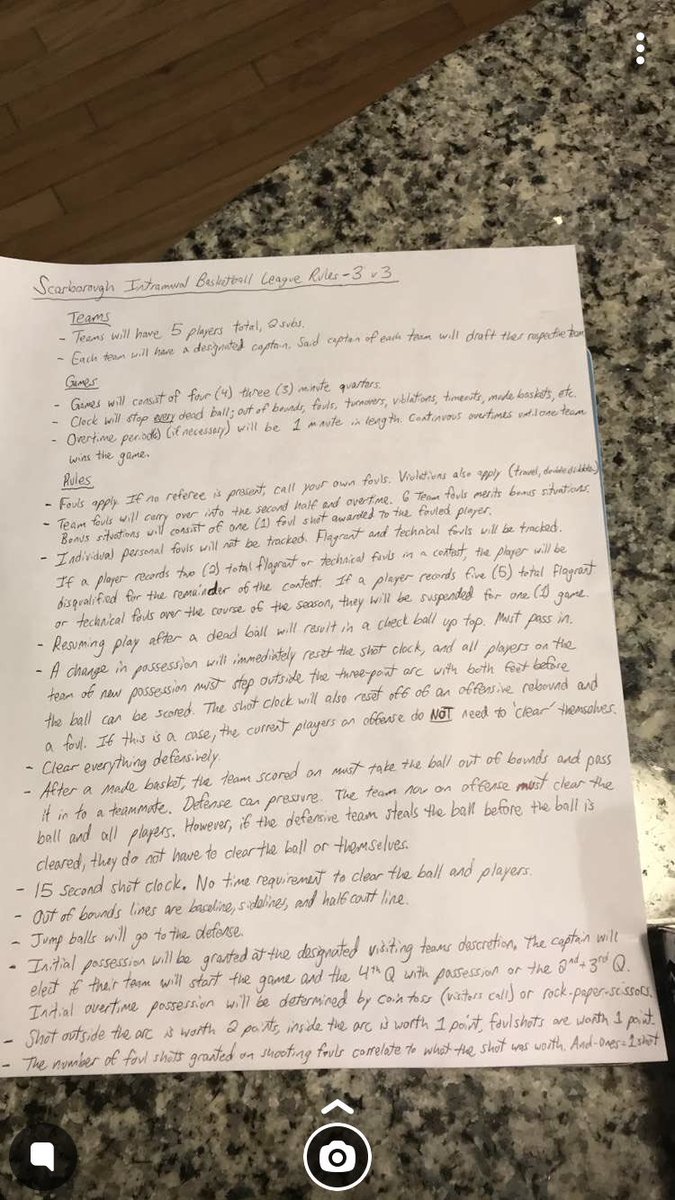 Scarborough Intramural Basketball League Rules - 3 v 3
Teams
- Teams will have 5 players total, 2 subs.
- Each team will have a designated captain. Said captain of each team will draft their respective team
Games
- Games will consist of four (4) three (3) minute quarters.
- Clock will stop every dead ball; out of bounds, fouls, turnovers, violations, timeouts, made baskets, etc.
- Overtime periods (if necessary) will be 1 minute in length. Continuous overtimes until one team
wins the game.
Rules
- Fouls apply. If no referee is present, call your own fouls. Violations also apply (travel, double dribble)
- Team fouls will carry over into the second half and overtime. 6 Team fouls merits bonus situations.
Bonus situations will consist of one (1) foul shot awarded to the fouled player.
- Individual personal fouls will not be tracked. Flagrant and technical fouls will be tracked.
If a player records two (2) total flagrant or technical fouls in a contest, the player will be
disqualified for the remainder of the contest. If a player records five (5) total flagrant
or technical fouls over the course of the season, they will be suspended for one (1) game.
- Resuming play after a dead ball will result in a check ball up top. Must pass in.
- A change in possession will immediately reset the shot clock, and all players on the
team of new possession must step outside the three-point arc with both feet before
the ball can be scored. The shot clock will also reset off of an offensive rebound and
a foul. If this is a case, the current players on offense do NOT need to 'clear' themselves.
- Clear everything defensively.
- After a made basket, the team scored on must take the ball out of bounds and pass
it in to a teammate. Defense can pressure. The team now on offense must clear the
ball and all players. However, if the defensive team steals the ball before the ball is
cleared, they do not have to clear the ball or themselves.
- 15 second shot clock. No time requirement to clear the ball and players.
- Out of bounds lines are baseline, sidelines, and half court line.
- Jump balls will go to the defense.
- Initial possession will be granted at the designated visiting teams descretion. The captain will
elect if their team will start the game and the 4th Q with possession or the 2nd + 3rd Q.
Initial overtime possession will be determined by coin toss (visitors call) or rock-paper-scissors.
- Shot outside the arc is worth 2 points, inside the arc is worth 1 point, foul shots are worth 1 point.
- The number of foul shots granted on shooting fouls correlate to what the shot was worth. And-ones = 1 shot